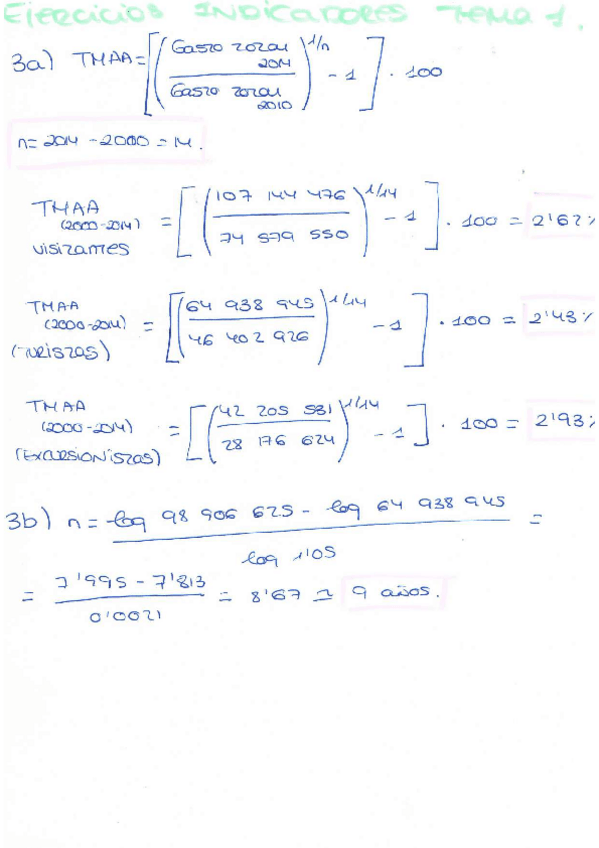 Ejercicios INDICADORES Tema 1.
3a) TMAA = [(Gasto total 2014 / Gasto total 2010)^1/n - 1] · 100
n = 2014 - 2000 = 14.
TMAA (2000-2014) visitantes = [(107 144 476 / 74 579 550)^1/14 - 1] · 100 = 2'62%
TMAA (2000-2014) (turistas) = [(64 938 945 / 46 402 926)^1/14 - 1] · 100 = 2'43%
TMAA (2000-2014) (EXCURSIONISTAS) = [(42 205 531 / 28 176 624)^1/14 - 1] · 100 = 2'93%
3b) n = log 98 906 625 - log 64 938 945 / log 1'05 =
= 7'995 - 7'813 / 0'0021 = 8'67 ≃ 9 años.